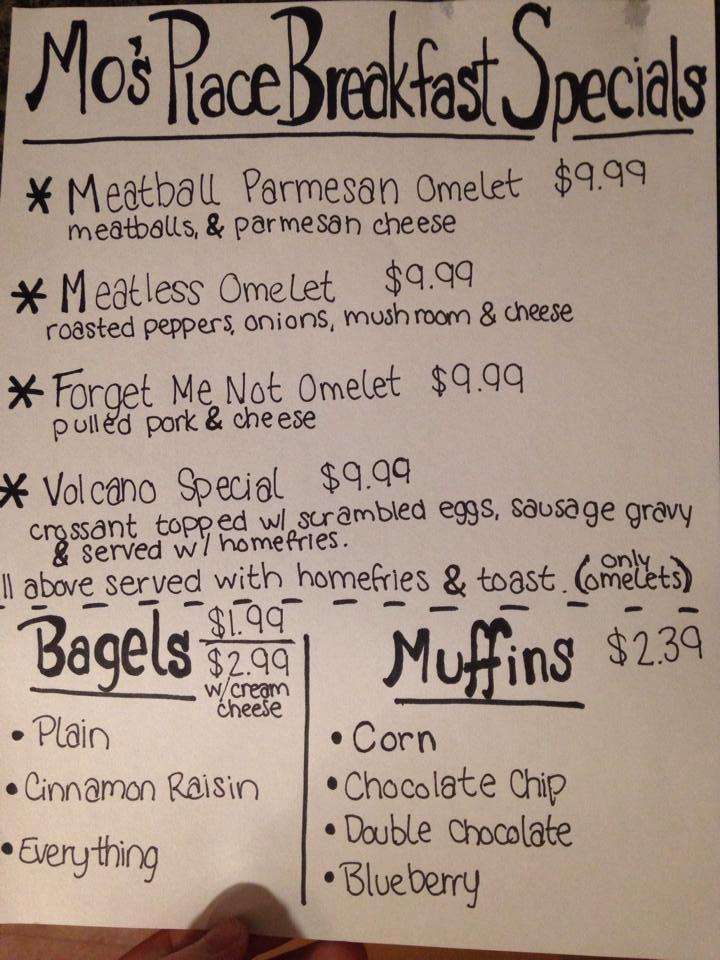 Mo's Place Breakfast Specials
* Meatball Parmesan Omelet $9.99
meatballs, & parmesan cheese
* Meatless Omelet $9.99
roasted peppers, onions, mushroom & cheese
* Forget Me Not Omelet $9.99
pulled pork & cheese
* Volcano Special $9.99
crossant topped w/ scrambled eggs, sausage gravy
& served w/ homefries.
ll above served with homefries & toast. (only omelets)
Bagels $1.99
$2.99
w/cream
cheese
• Plain
• Cinnamon Raisin
• Everything
Muffins $2.39
• Corn
• Chocolate Chip
• Double Chocolate
• Blueberry